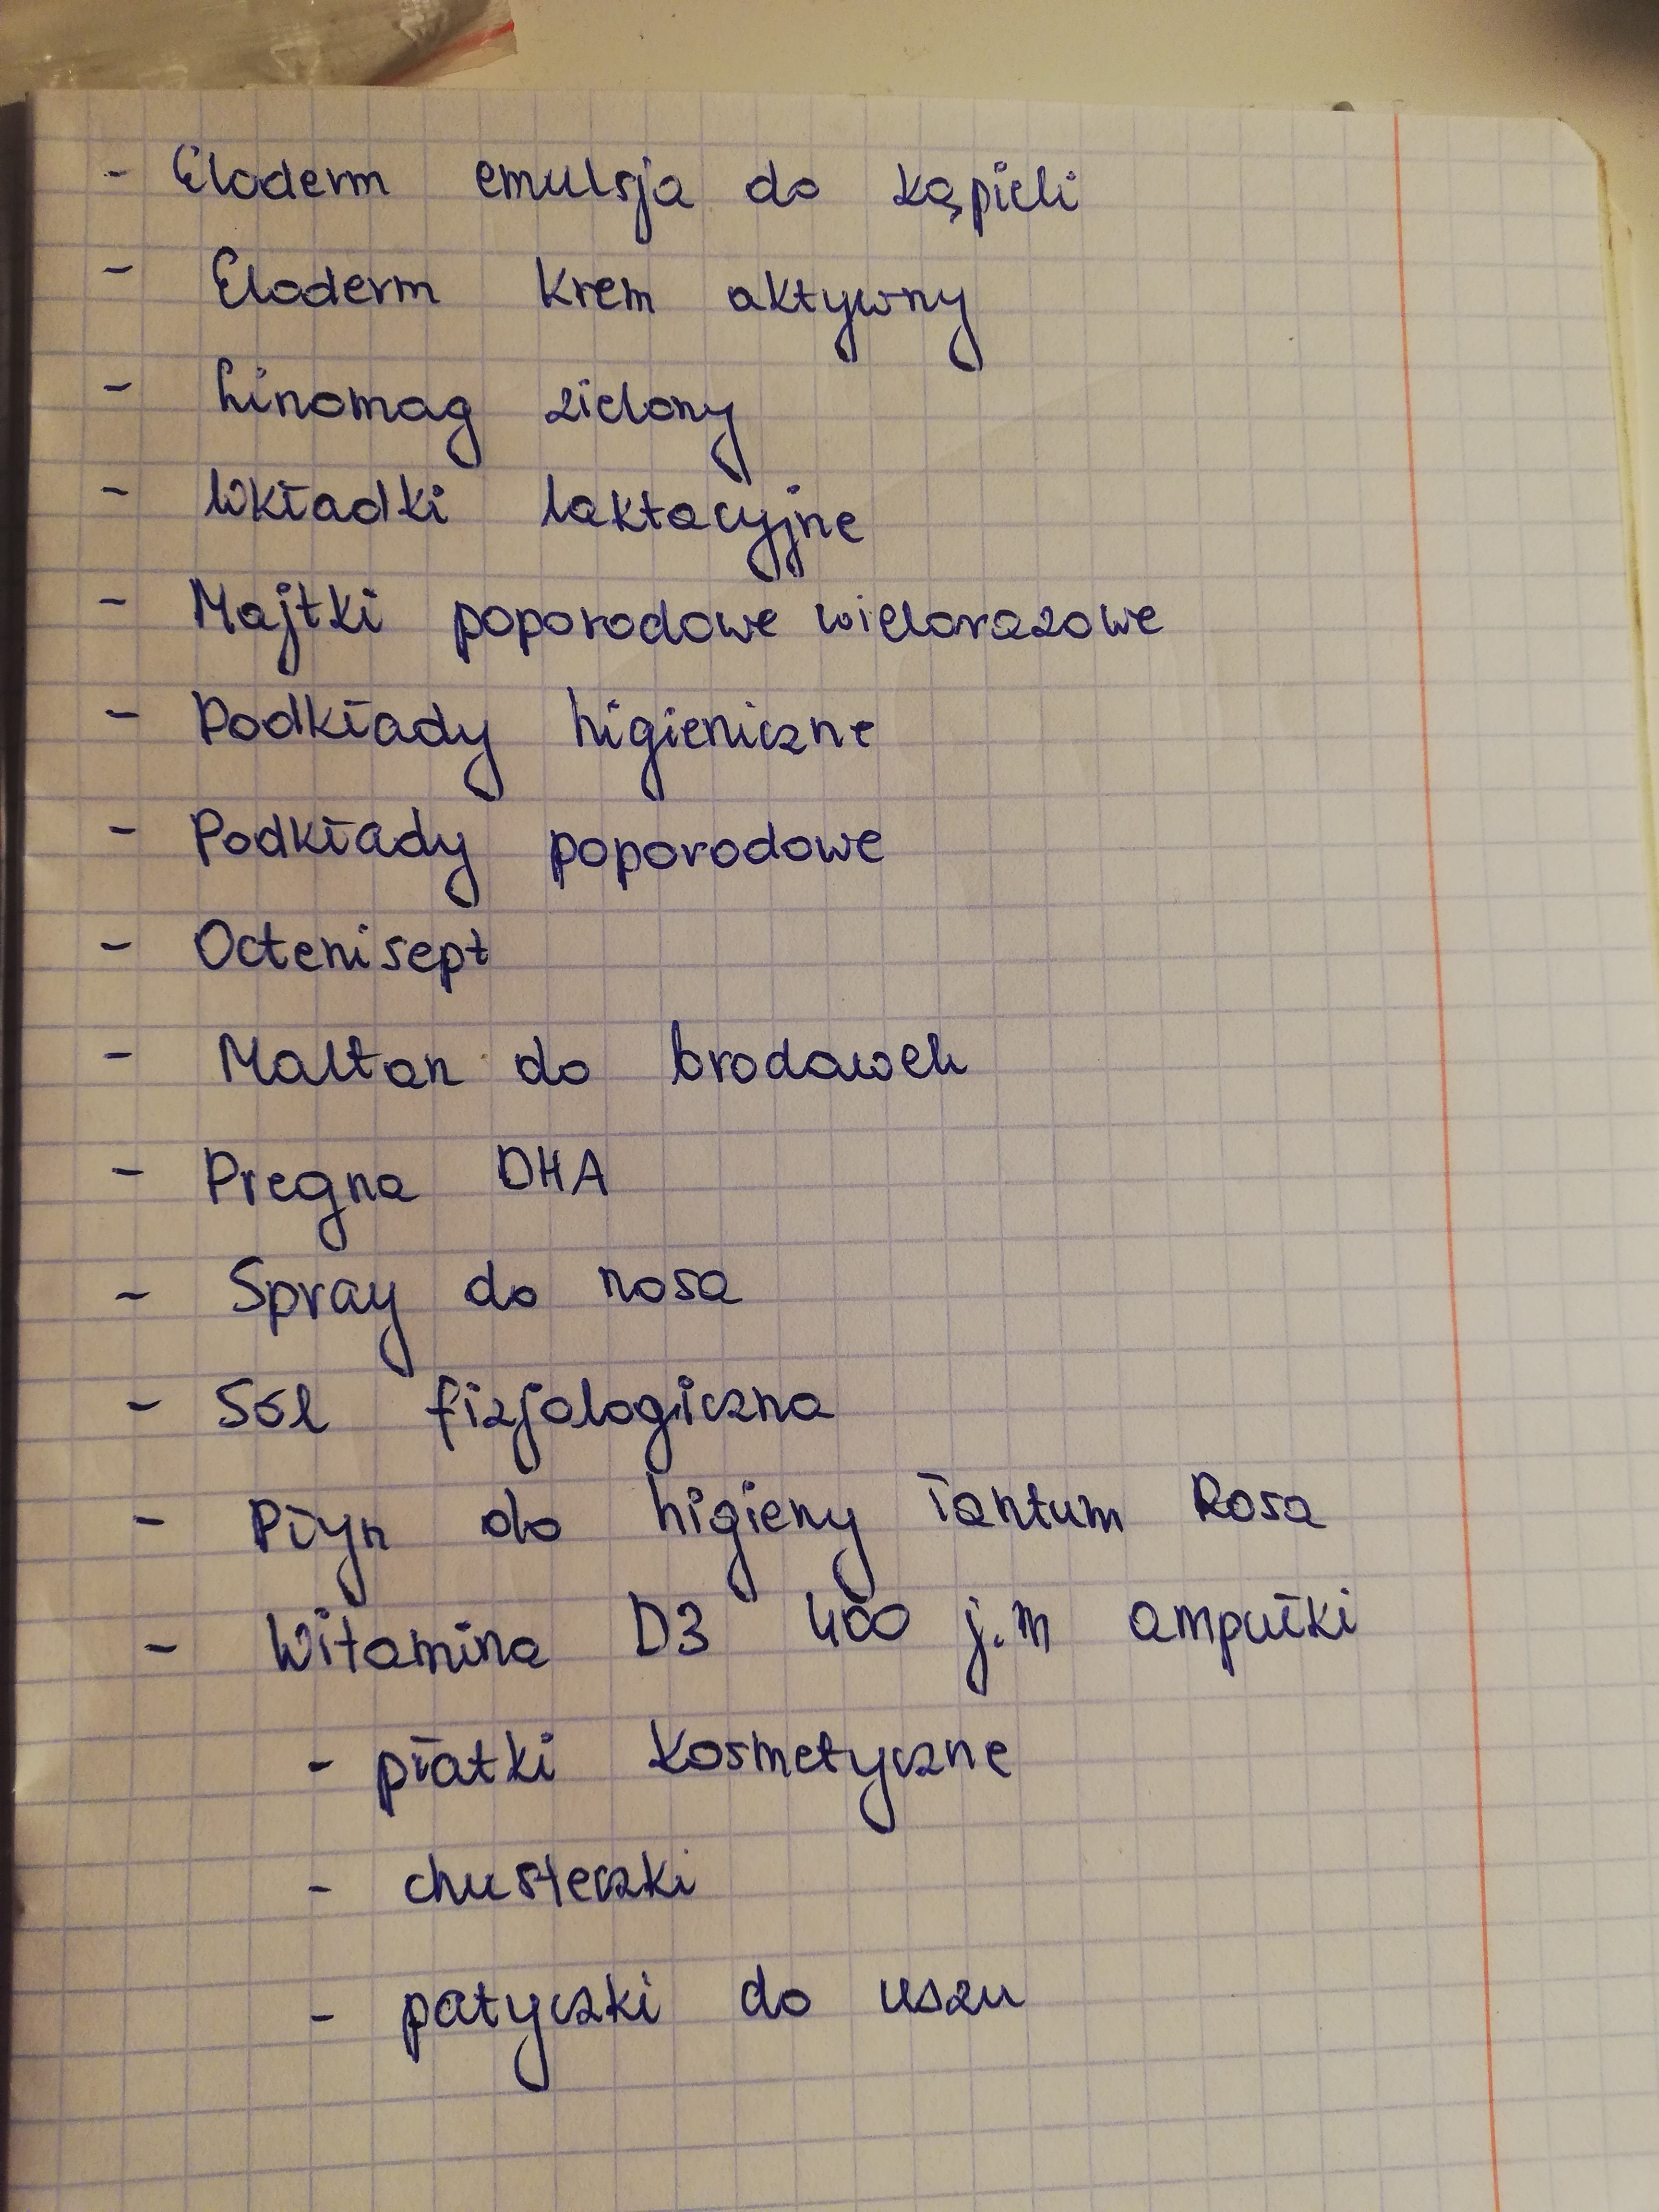 - Eloderm emulsja do kąpieli
- Eloderm krem aktywny
- Linomag zielony
- Wkładki laktacyjne
- Majtki poporodowe wielorazowe
- Podkłady higieniczne
- Podkłady poporodowe
- Octenisept
- Maltan do brodawek
- Pregna DHA
- Spray do nosa
- Sól fizjologiczna
- Płyn do higieny Tantum Rosa
- Witamina D3 400 j.m ampułki
- płatki kosmetyczne
- chusteczki
- patyczki do uszu